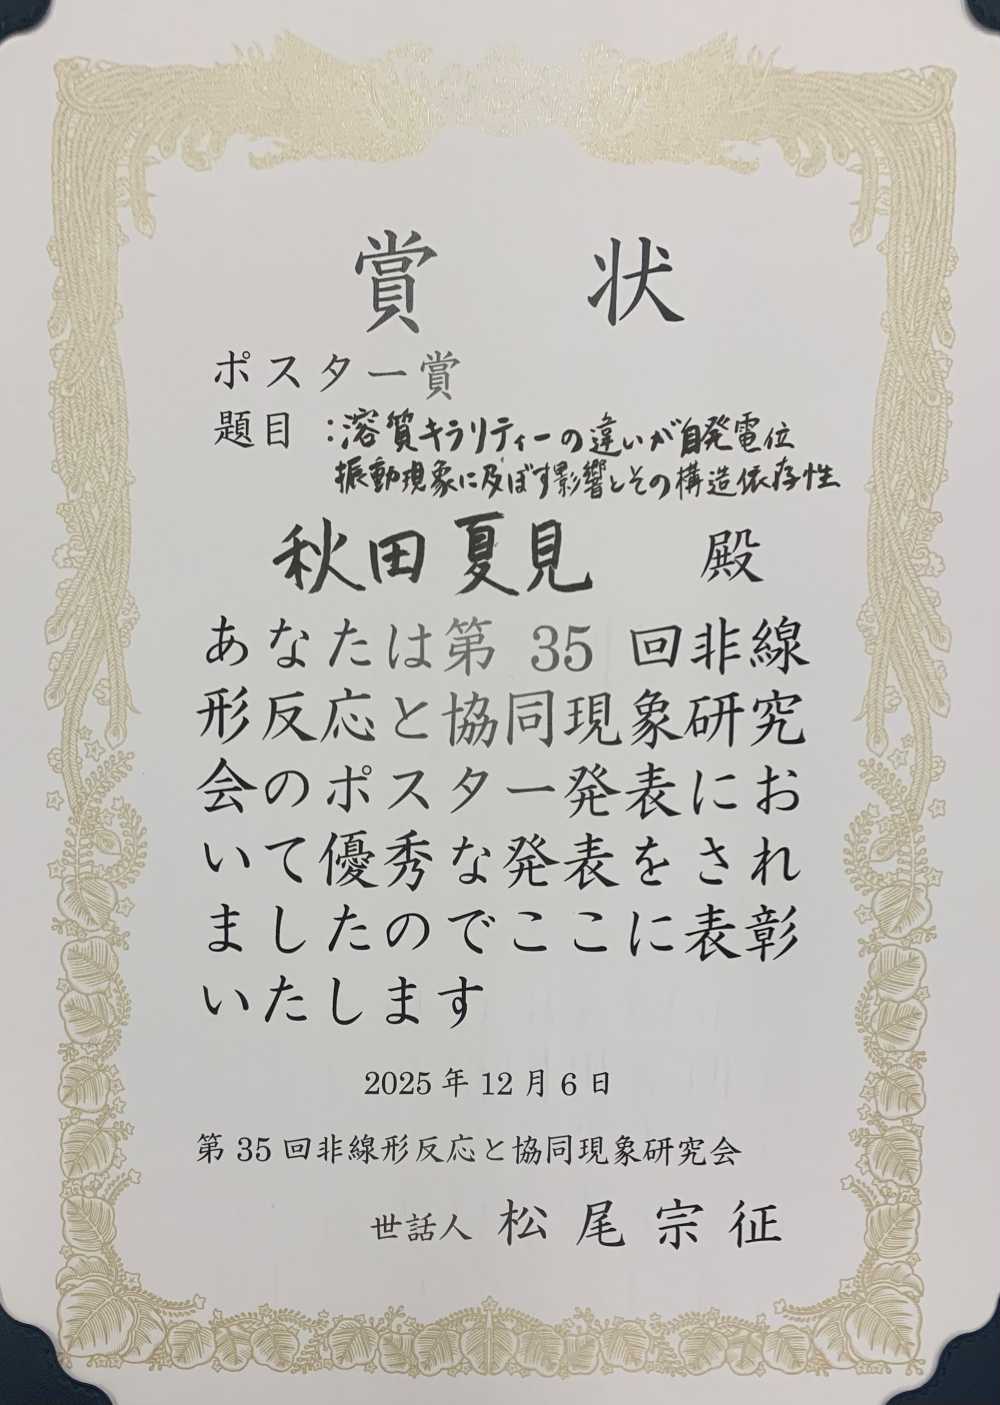 賞 状
ポスター賞
題目 :溶質キラリティーの違いが自発電位
振動現象に及ぼす影響とその構造依存性
秋田夏見 殿
あなたは第 35 回非線
形反応と協同現象研究
会のポスター発表にお
いて優秀な発表をされ
ましたのでここに表彰
いたします
2025 年 12 月 6 日
第 35 回非線形反応と協同現象研究会
世話人 松尾宗征